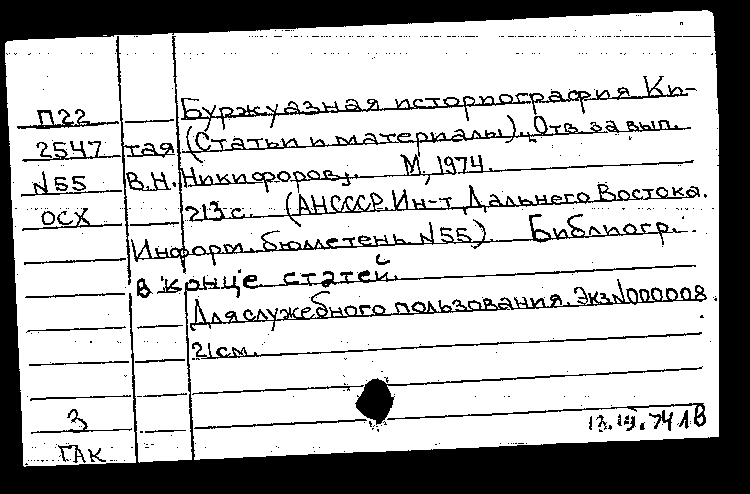 П22 Буржуазная историография Ки-
2547 тая (Статьи и материалы). Отв. за вып.
N55 В.Н. Никифоров. М., 1974.
ОСХ 213с. (АНСССР. Ин-т Дальнего Востока.
Информ. бюллетень N55). Библиогр.
в конце статей.
Для служебного пользования. Экз N000008.
21см.
3
ГАК
74 1В